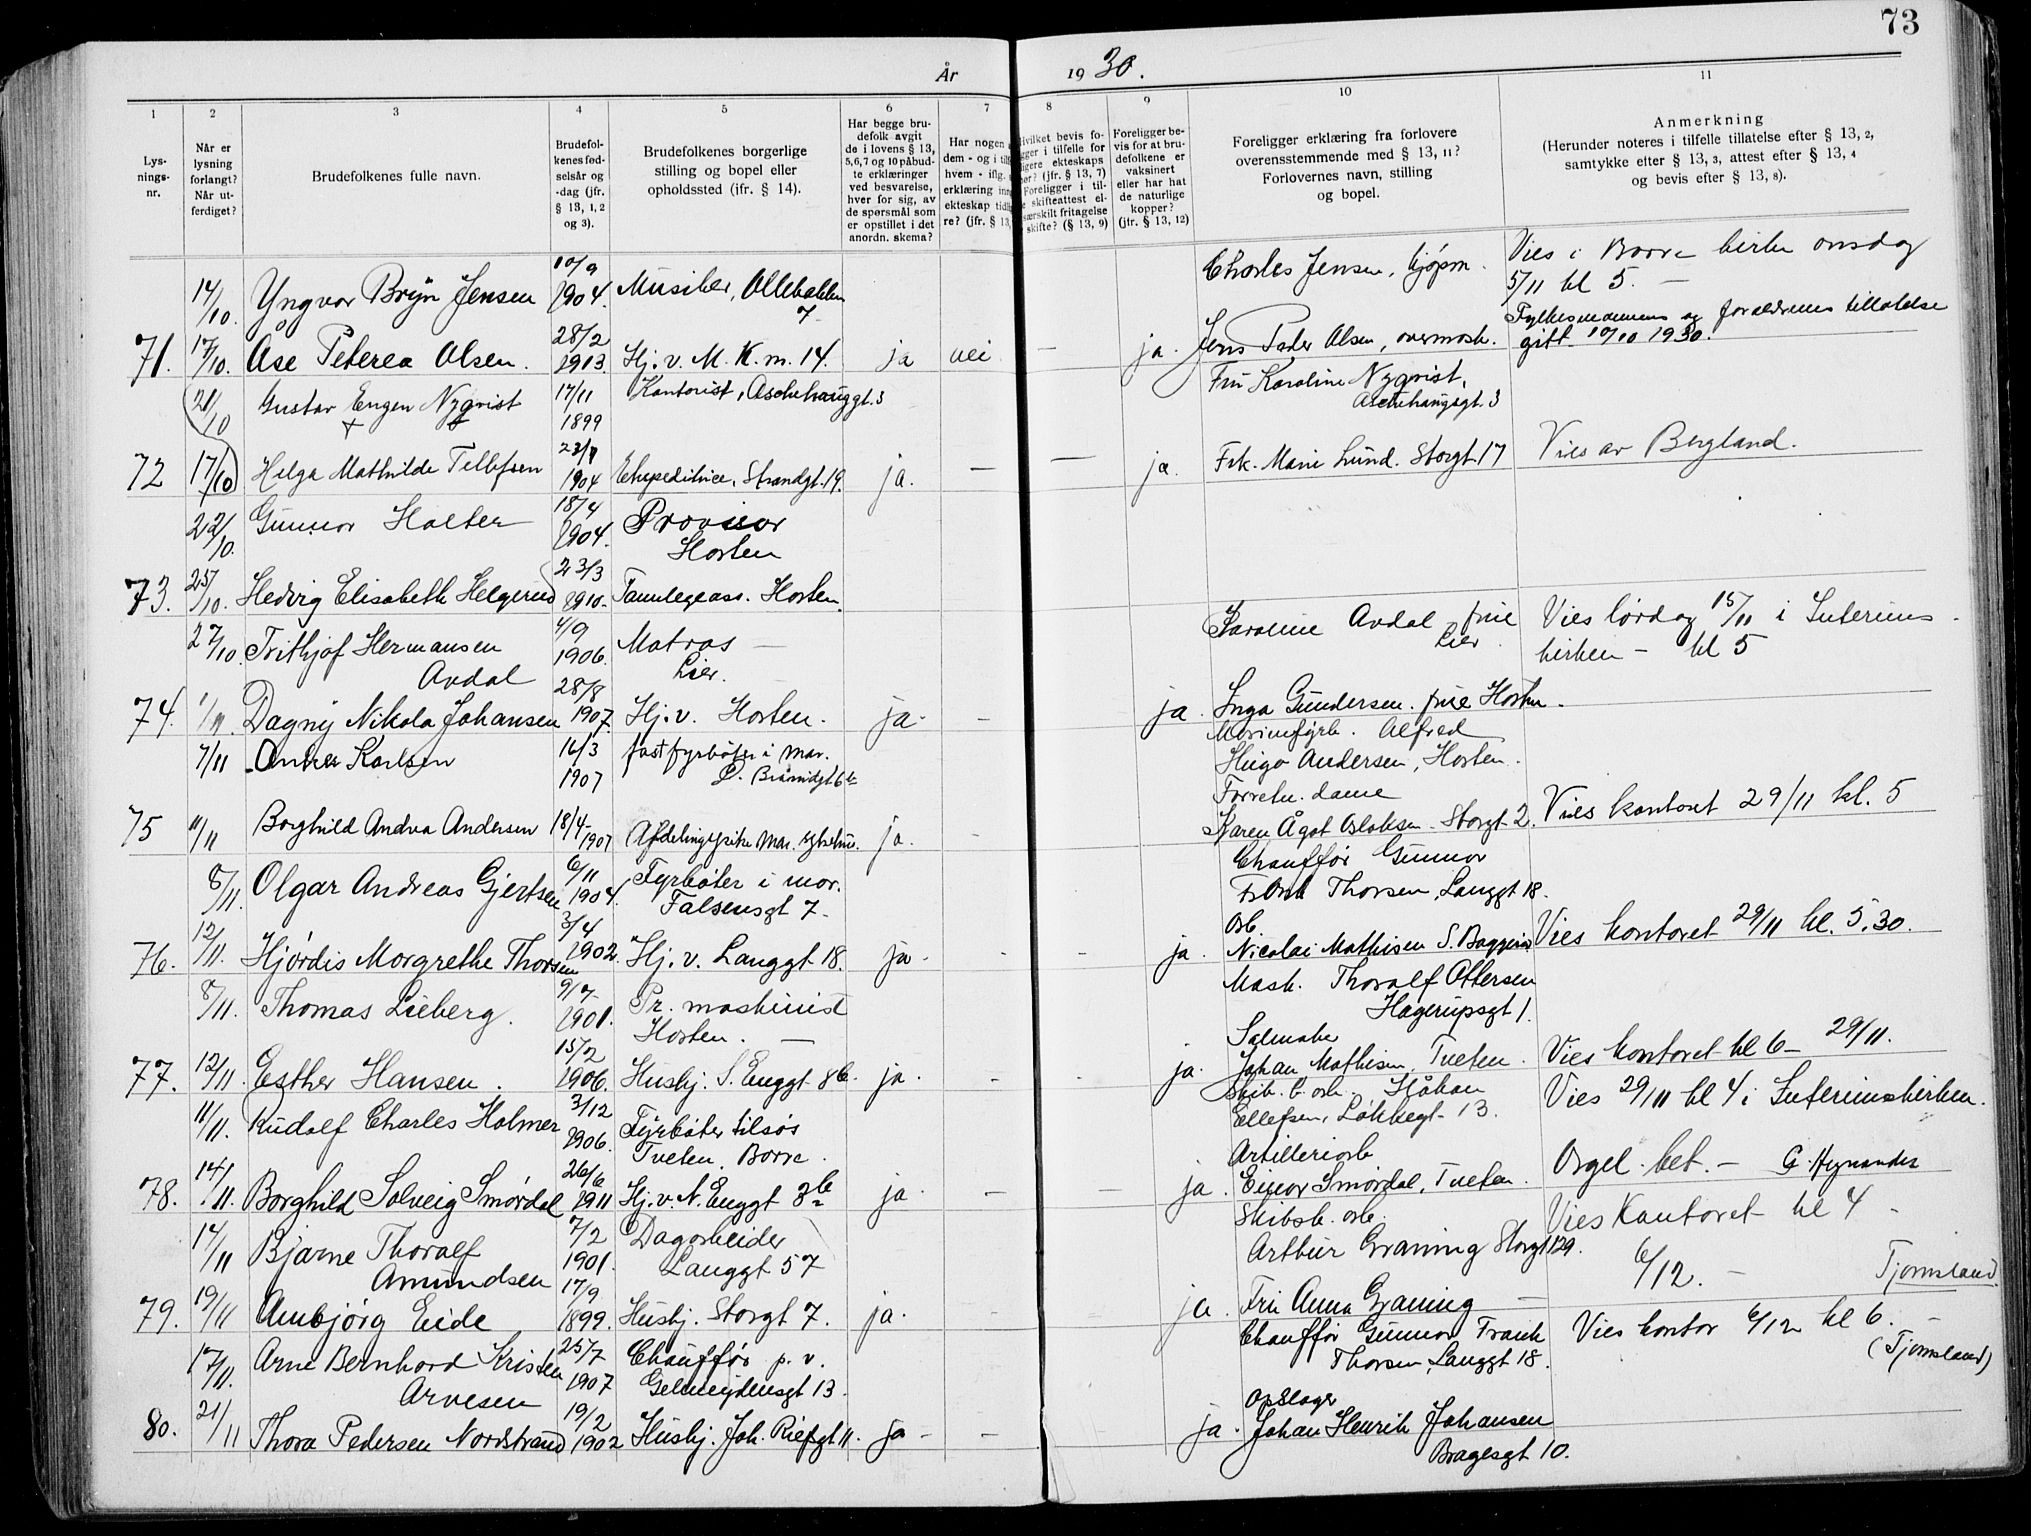 73
År 1930.
1 2 3 4 5 6 7 8 9 10 11
Lys-
nings-
nr.
Når er
lysning
forlangt?
Når ut-
ferdiget?
Brudefolkenes fulle navn.
Brudefol-
kenes fød-
selsår og
-dag (jfr.
§ 13, 1, 2
og 3).
Brudefolkenes borgerlige
stilling og bopel eller
opholdssted (jfr. § 14).
Har begge bru-
defolk avgit
de i lovens § 13,
5, 6, 7 og 10 påbud-
te erklæringer
ved besvarelse,
hver for sig, av
de spørsmål som
er opstillet i det
anordn. skema?
Har nogen
dem - og i
hvem - iflg.
erklæring
ekteskap
re? (jfr. § 13,
Hvilket bevis fo-
i tilfelle for
ekteskaps
(jfr. § 13, 7)
Foreligger i til-
skifteattest el-
særskilt fritagelse
skifte? (§ 13, 9)
Foreligger be-
vis for at bru-
defolkene er
vaksinert
eller har hat
de naturlige
kopper?
(jfr. § 13, 12)
Foreligger erklæring fra forlovere
overensstemmende med § 13, 11?
Forlovernes navn, stilling
og bopel.
Anmerkning
(Herunder noteres i tilfelle tillatelse efter § 13, 2,
samtykke efter § 13, 3, attest efter § 13, 4
og bevis efter § 13, 8).
14/10. Yngvar Bryn Jensen 10/9 1904. Musiker, Ollebakken 7 Charles Jensen, kjøpm. Vies i Borre kirke onsdag
5/11 kl 5. —
Fylkesmannens og foreldrenes tillatelse
71. 17/10. Åse Peterea Olsen. 28/2 1913. Hj. v. M. K. m. 14. ja nei — ja. Jens Peder Olsen, overmask. gitt 10/10 1930.
21/10 Gustav Engen Nyqvist 17/11 1899 Kontorist, Aschehouggt. 3 Fru Karoline Nyqvist,
Aschehougsgt. 3
72 17/10 Helga Mathilde Tellefsen 1904 Ekspeditrice, Strandgt. 19. ja. — — ja. Frk. Marie Lund. Storgt. 17 Vies av Bergland.
22/10. Gunnar Holter 18/4 1904. Provisor
Horten
73. 25/10. Hedvig Elisabeth Helgerud 23/3 1910. Tannlegeass. Horten.
27/10. Frithjof Hermansen
Avdal 4/9 1906. Matros —
Lier. Karoline Avdal frue
Lier. Vies lørdag 15/11 i Interims-
kirken — kl 5
74. Dagny Nikola Johansen 28/8 1907. Hj. v. Horten. ja. - ja. Inga Gundersen. frue Horten.
7/11 Andrea Karlsen 16/3 1907 fast fyrbøter i mar. Alfred
Hugo Andersen, Horten.
Forretn. dame
75 11/11 Borghild Andrea Andersen 18/4-1907 ja. - Karen Ågot Storgt. 2. Vies kontoret 29/11 kl. 5
8/11. Olgar Andreas Gjertsen 6/11 1904. Fyrbøter i mar.
Falsensgt 7. Chauffør Gunnar
Frank Thorsen, Langgt 18.
76. 12/11. Hjørdis Margrethe Thorsen 3/4 1902. Hj. v. Langgt 18. ja. - - ja. Arb.
Nicolai Mathisen Vies kontoret 29/11 kl. 5,30.
8/11. Thomas Lieberg. 9/7 1901. Pr. maskinist
Horten. — Mask. Thoralf Ottersen
Hagerupsgt 1.
77. 12/11. Esther Hansen. 15/2 1906. Hushj. S. Enggt. 8b. ja. - - ja. Salmaker
Johan Mathisen, Tveten. Vies kontoret kl 6 — 29/11.
11/11. Rudolf Charles Holmer 3/12 1906. Fyrbøter tilsøs
Tveten. Borre. Håkon
Ellefsen, Løkkegt. 13. Vies 29/11 kl 4 i Interimskirken.
78. 14/11. Borghild Solveig Smørdal 26/6 1911 Hj. v. N. Enggt 3b ja. - — ja. Artilleriarb
Einar Smørdal, Tveten. Orgel. bet. —
14/11 Bjarne Thoralf
Amundsen 7/2 1901. Dagarbeider
Langgt 57 Skibsb. arb.
Arthur Graning Storgt 129. Vies Kontoret kl 4
6/12. — Tjomsland
79. 19/11 Ambjørg Eide 17/9 1899. Hushj. Storgt 7. ja. - ja. Fru Anna Graning
17/11. Arne Bernhard Kristen
Arvesen 25/7 1907 Chauffør p. v.
Gelmeydensgt 13. Chauffør Gunnar Frank
Thorsen, Langgt 18. Vies kontor 6/12 kl 6. —
(Tjomsland)
80. 21/11 Thora Pedersen Nordstrand 19/2 1902 Hushj. Joh. Piefgt 11. ja - - ja. Opslager
Johan Henrik Johansen
Bragesgt 10.